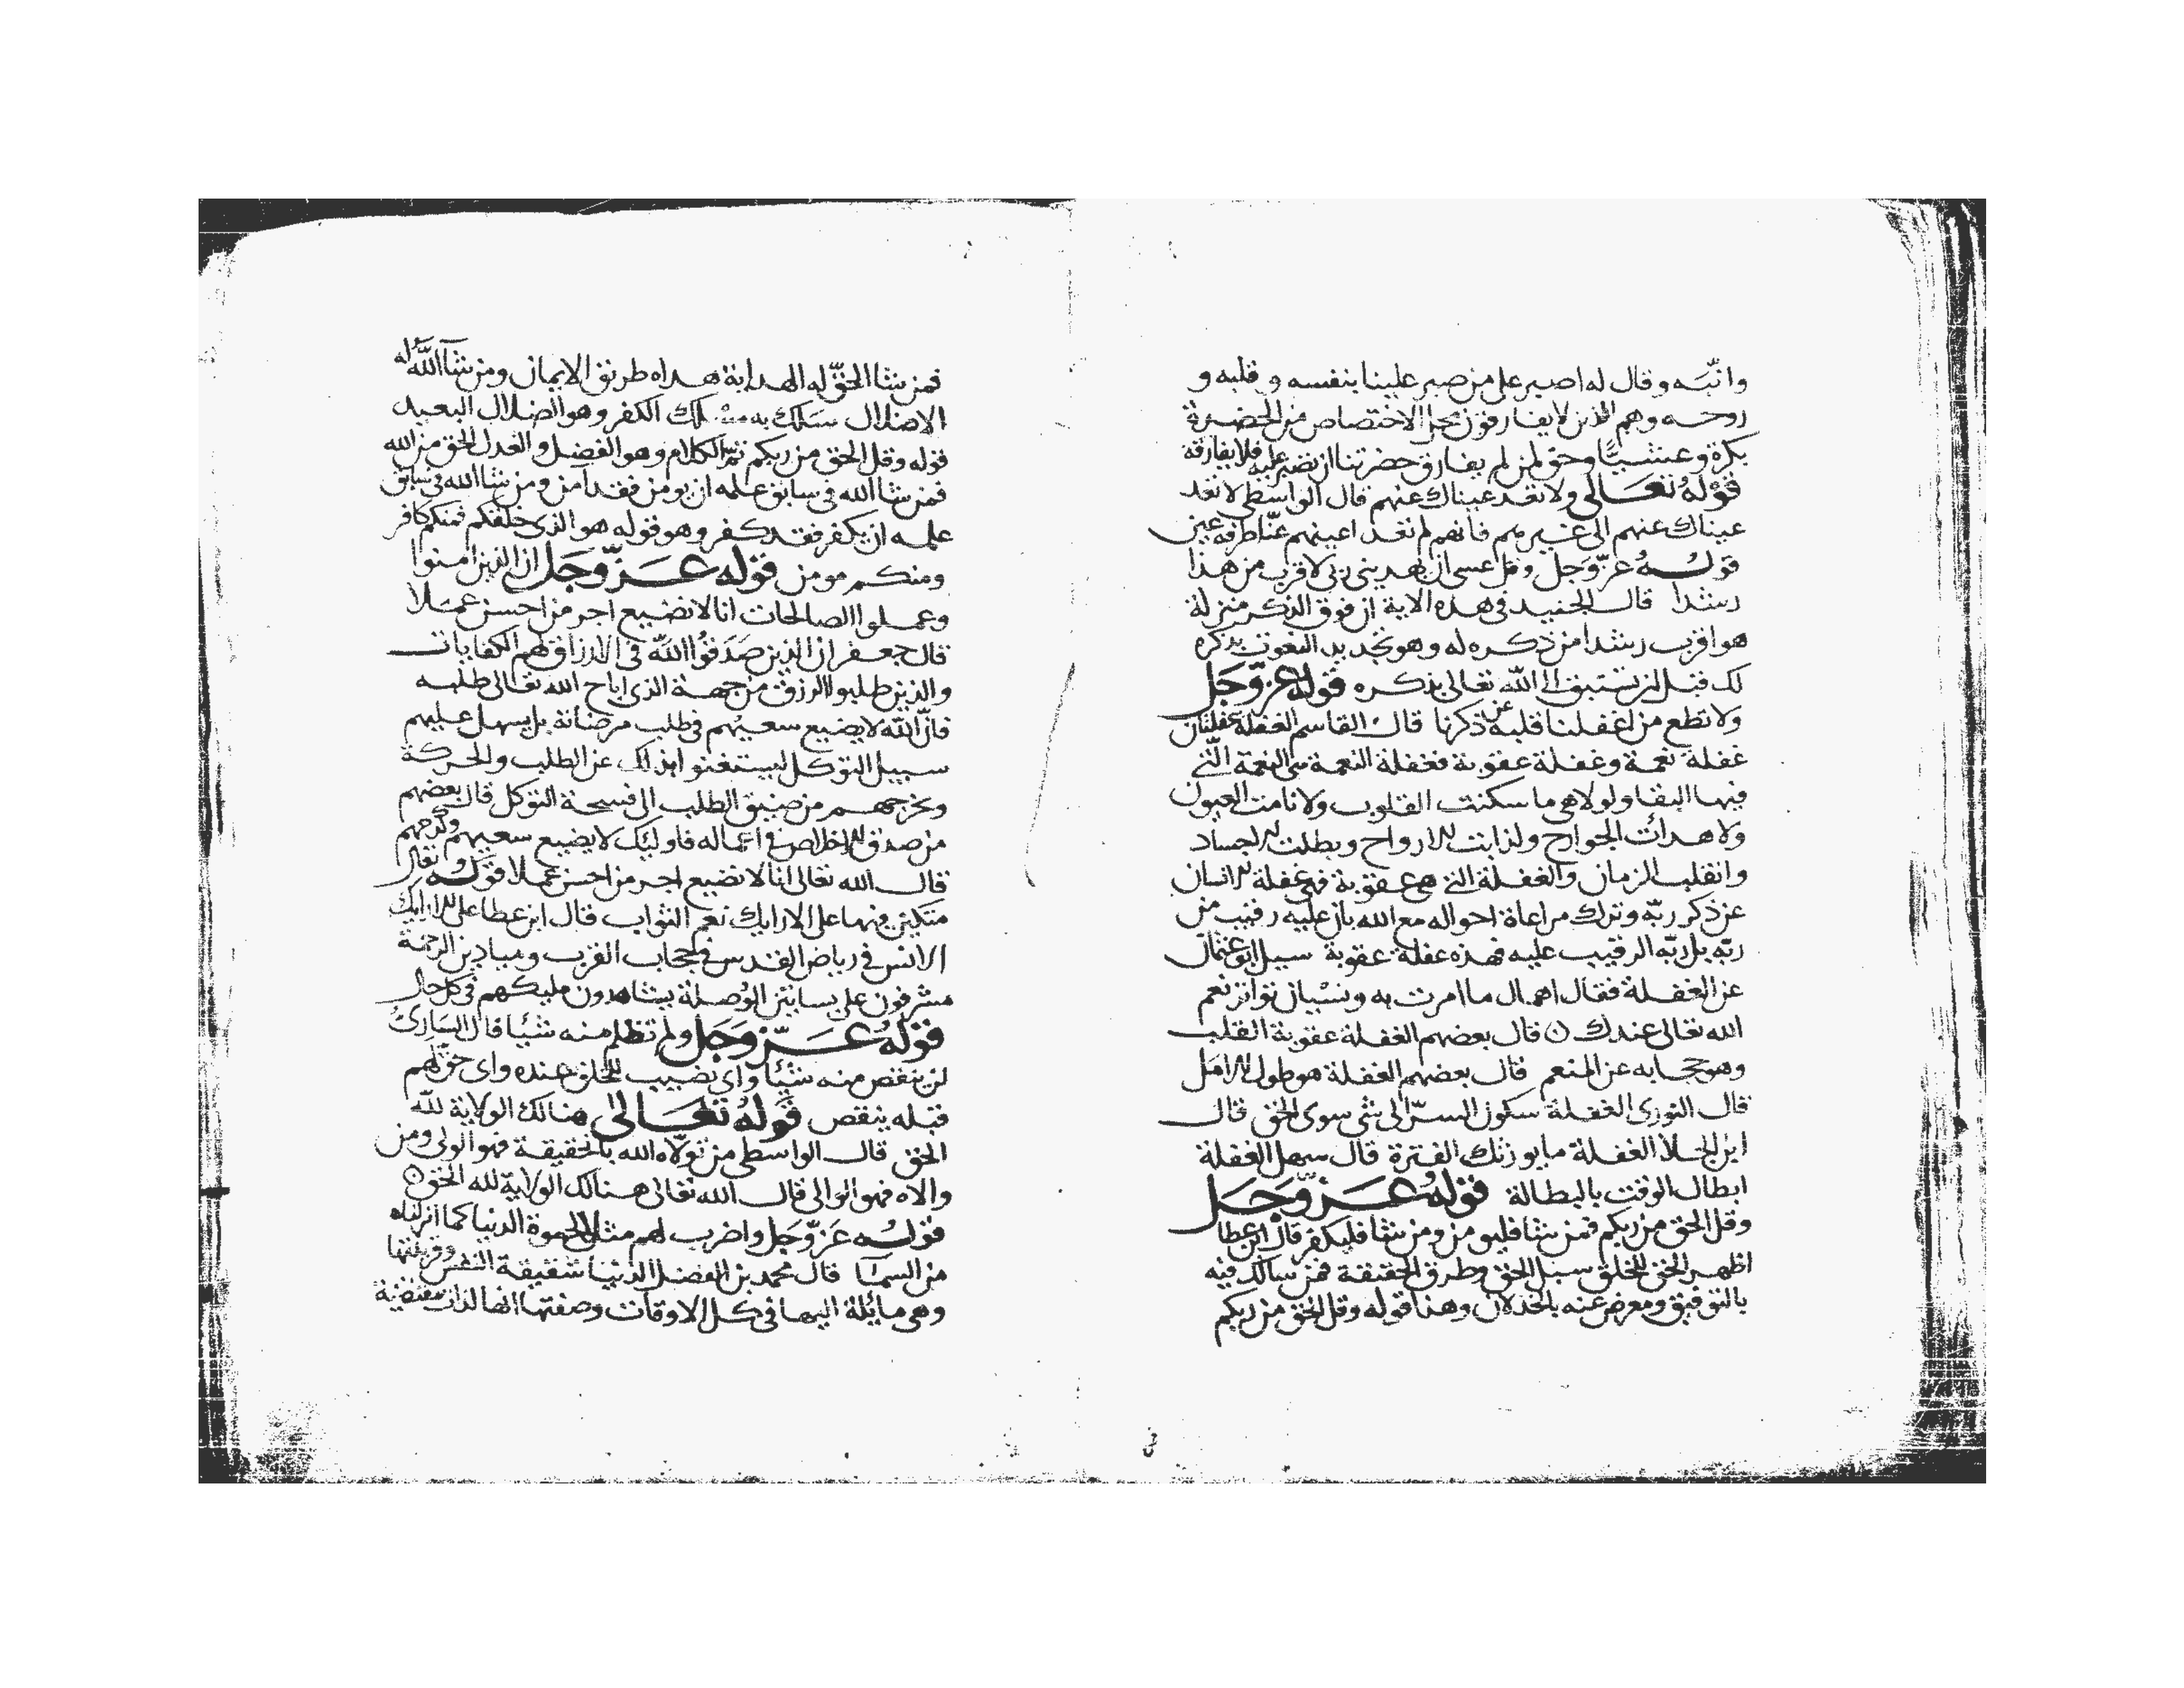 وانبّه وقال له اصبر على من صبر علينا بنفسه و قلبه و
روحه وهم الذين لا يفارقون محل الاختصاص من الحضرة
بكرة وعشيّا وحق لمن لم يفارق حضرتنا ان نصبر عليه فلا يفارقه
قوله تعالى ولا تعد عيناك عنهم قال الواسطي لا تعد
عيناك عنهم الى غيرهم فانهم لم تعد اعينهم عنّا طرفة عين
قوله عزّ وجل وقل عسى ان يهديني ربي لاقرب من هذا
رشدا قال الجنيد في هذه الاية ان فوق الذكر منزلة
هو اقرب رشدا من ذكره له وهو تجديد النعوت بذكره
لك قبل ان تستبق الى الله تعالى بذكره قوله عزّ وجل
ولا تطع من اغفلنا قلبه عن ذكرنا قال القاسم الغفلة غفلتان
غفلة نعمة وغفلة عقوبة فغفلة النعمة هي النعمة الّتي
فيها البقا ولولا هي ما سكنت القلوب ولا نامت العيون
ولا هدات الجوارح ولذابت الارواح وبطلت الاجساد
وانقلب الزمان والغفلة التي هي عقوبة فهي غفلة الانسان
عن ذكر ربّه وترك مراعاة احواله مع الله بان عليه رقيب من
ربّه بل ربّه الرقيب عليه فهذه غفلة عقوبة سيل ابو عثمان
عن الغفلة فقال اهمال ما امرت به ونسيان تواتر نعم
الله تعالى عندك ن قال بعضهم الغفلة عقوبة القلب
وهو حجابه عن المنعم قال بعضهم الغفلة هو طول الامل
قال النوري الغفلة سكون السرّ الى شي سوى الحق قال
ابن الجلا الغفلة ما يورثك الفترة قال سهل الغفلة
ابطال الوقت بالبطالة قوله عزّ وجل
وقل الحق من ربكم فمن شا فليومن ومن شا فليكفر قال ابن عطا
اظهر الحق للخلق سبل الحق وطرق الحقيقة فمن سالك فيه
بالتوفيق ومعرض عنه بالخذلان وهذا قوله وقل الحق من ربكم
فمن شا الحقّ له الهداية هداه طريق الايمان ومن شآ اللّه له
الاضلال سلك به مسلك الكفر وهو الضلال البعيد
قوله وقل الحق من ربكم تمّ الكلام وهو الفضل والعدل الحق من الله
فمن شا الله في سابق علمه ان يومن فقد آمن ومن شا الله في سابق
علمه ان يكفر فقد كفر وهو قوله هو الذي خلقكم فمنكم كافر
ومنكم مومن قوله عزّ وجل ان الذين امنوا
وعملوا الصالحات انا لا نضيع اجر من احسن عملا
قال جعفر ان الذين صَدَقُوا اللّه في الارزاق لهم الكفايات
والذين طلبوا الرزق من جهة الذي اباح الله تعالى طلبه
فانّ اللّه لا يضيع سعيهم في طلب مرضاته بل يسهل عليهم
سبيل التوكل ليستغنوا بذلك عن الطلب والحركة
ويخرجهم من ضيق الطلب الى فسحة التوكل قال بعضهم
من صدق الاخلاص في اعماله فاوليك لا يضيع سعيهم وكدحهم
قال الله تعالى انا لا نضيع اجر من احسن عملا قوله تعالى
متكين فيها على الارايك نعم الثواب قال ابن عطا على ارايك
الانس في رياض القدس في حجاب القرب وميادين الرحمة
مشرفون على بساتين الوصلة يشاهدون مليكهم في كل حال
قوله عزّ وجل ولم تظلم منه شيئا قال الساري
لن ينقص منه شيئا واي نصيب للخلق عنده واي حق لهم
قبله ينقص قوله تعالى هنالك الولاية للّه
الحق قال الواسطي من تولّاه الله بالحقيقة فهو الولي ومن
والاه فهو الوالي قال الله تعالى هنالك الولاية لله الحق ن
قوله عَزّ وَجَل واضرب لهم مثل الحيوة الدنيا كما انزلناه
من السما قال محمد بن الفضل الدنيا شقيقة النفس وقرينتها
وهي مائلة اليها في كل الاوقات وصفتها انها لذات منقضية